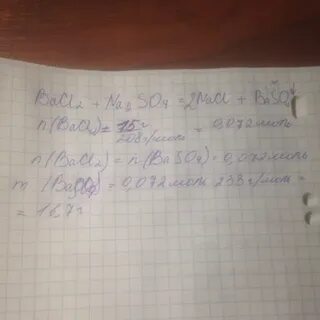 BaCl₂ + Na₂SO₄ = 2NaCl + BaSO₄
n(BaCl₂) = 15г / 208г/моль = 0,072 моль
n(BaCl₂) = n(BaSO₄) = 0,072 моль
m (BaSO₄) = 0,072 моль 233 г/моль =
= 16,7г